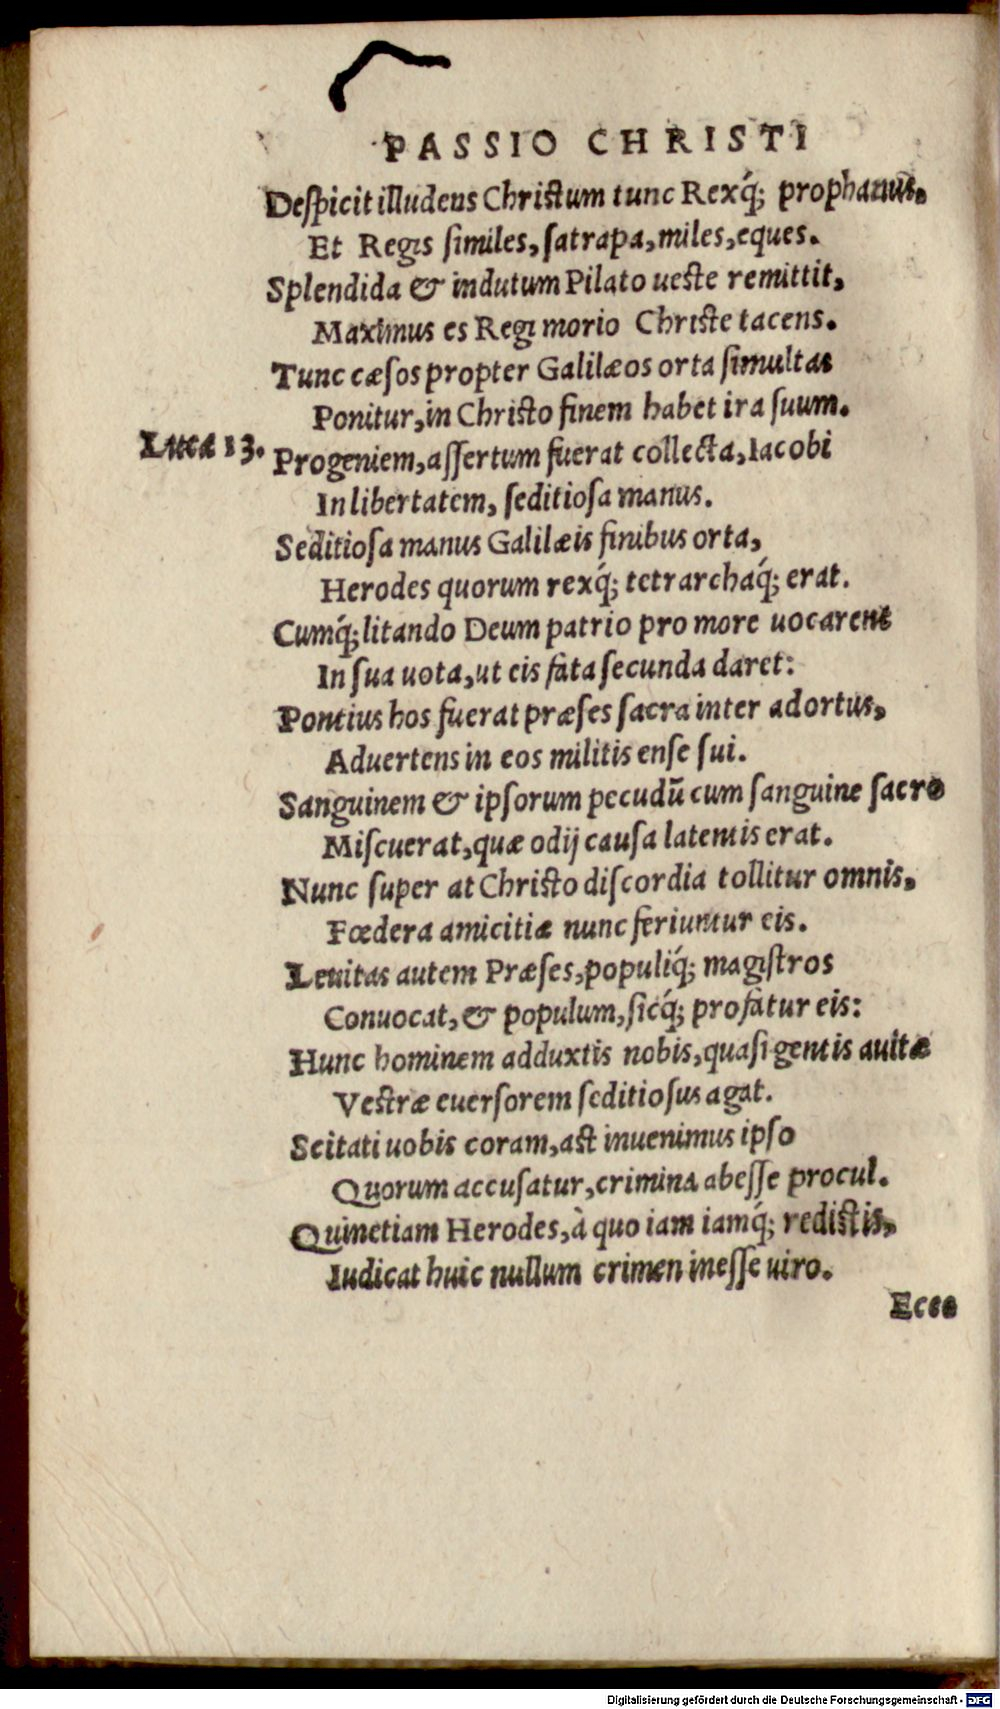 PASSIO CHRISTI
Despicit illudens Christum tunc Rexq́; prophanus.
Et Regis similes, satrapa, miles, eques.
Splendida & indutum Pilato ueste remittit,
Maximus es Regi morio Christe tacens.
Tunc cæsos propter Galilæos orta simultas
Ponitur, in Christo finem habet ira suum.
Lucæ 13.
Progeniem, assertum fuerat collecta, Iacobi
In libertatem, seditiosa manus.
Seditiosa manus Galilæis finibus orta,
Herodes quorum rexq́; tetrarchaq́; erat.
Cumq́; litando Deum patrio pro more uocarent
In sua uota, ut eis fata secunda daret:
Pontius hos fuerat præses sacra inter adortus,
Aduertens in eos militis ense sui.
Sanguinem & ipsorum pecudū cum sanguine sacro
Miscuerat, quæ odij causa latentis erat.
Nunc super at Christo discordia tollitur omnis,
Fœdera amicitiæ nunc feriuntur eis.
Leuitas autem Præses, populiq́; magistros
Conuocat, & populum, sicq́; profatur eis:
Hunc hominem adduxtis nobis, quasi gentis auitæ
Vestræ euersorem seditiosus agat.
Scitati uobis coram, ast inuenimus ipso
Quorum accusatur, crimina abesse procul.
Quinetiam Herodes, à quo iam iamq́; redistis,
Iudicat huic nullum crimen inesse uiro.
Ecce
Digitalisierung gefördert durch die Deutsche Forschungsgemeinschaft - DFG